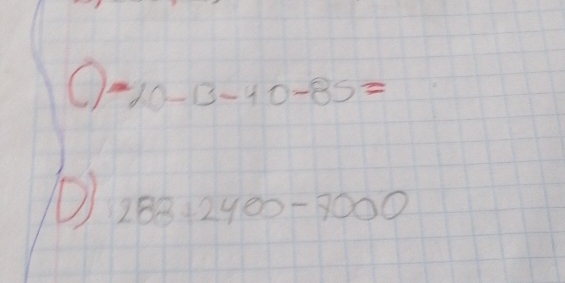 C) -20-13-40-85=
D) 283+2400-7000